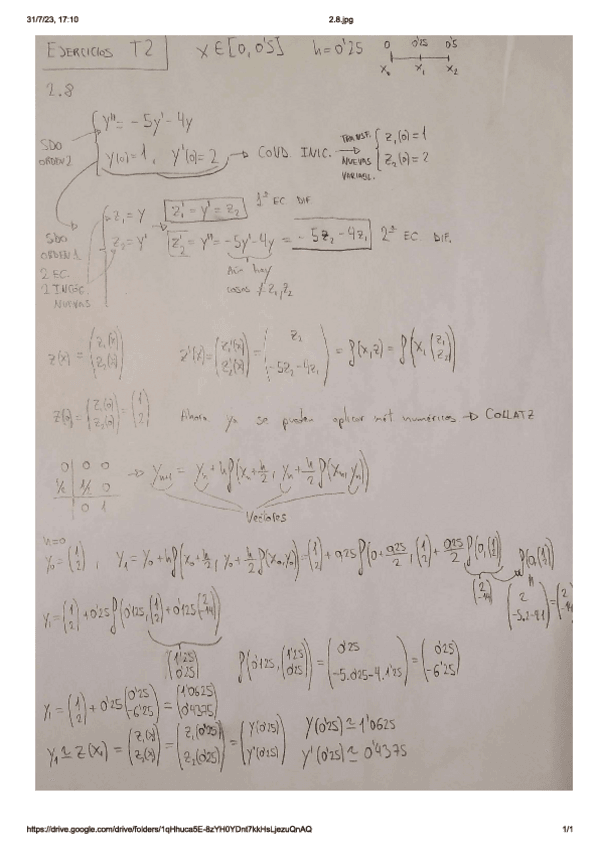 31/7/23, 17:10 2.8.jpg
EJERCICIOS T2 x ∈ [0, 0'5] h = 0'25 0 0'25 0'5
x₀ x₁ x₂
2.8
y'' = -5y' - 4y
SDO ORDEN 2
y(0) = 1, y'(0) = 2 → COND. INIC. TRANSF. NUEVAS VARIABL. → z₁(0) = 1
z₂(0) = 2
z₁ = y z₁' = y' = z₂ 1ª EC DIF
z₂ = y' z₂' = y'' = -5y' - 4y = -5z₂ - 4z₁ 2ª EC. DIF.
SDO
ORDEN 1
2 EC.
2 INCÓG.
NUEVAS
Aún hay
cosas ≠ z₁, z₂
z(x) = (z₁(x) z₂(x)) z'(x) = (z₁'(x) z₂'(x)) = (z₂ -5z₂-4z₁) = f(x,z) = f(x, (z₁ z₂))
z(0) = (z₁(0) z₂(0)) = (1 2) Ahora ya se pueden aplicar mét numéricos → COLLATZ
0 | 0 0
½ | ½ 0
0 1
→ yₙ₊₁ = yₙ + h f(xₙ + h/2, yₙ + h/2 f(xₙ, yₙ))
Vectores
n=0
y₀ = (1 2), y₁ = y₀ + h f(x₀ + h/2, y₀ + h/2 f(x₀, y₀)) = (1 2) + 0,25 f(0 + 0,25/2, (1 2) + 0,25/2 f(0, (1 2)))
f(0, (1 2))
(2 -14) (2 -5·2-4·1) = (2 -14)
y₁ = (1 2) + 0'25 f(0'125, (1 2) + 0'125 (2 -14))
(1'25 0'25) f(0'125, (1'25 0'25)) = (0'25 -5·0'25-4·1'25) = (0'25 -6'25)
y₁ = (1 2) + 0'25 (0'25 -6'25) = (1'0625 0'4375)
y₁ ≃ z(x₁) = (z₁(x₁) z₂(x₁)) = (z₁(0'25) z₂(0'25)) = (y(0'25) y'(0'25)) y(0'25) ≃ 1'0625
y'(0'25) ≃ 0'4375
https://drive.google.com/drive/folders/1qHhuca5E-8zYH0YDnt7kkHsLjezuQnAQ 1/1